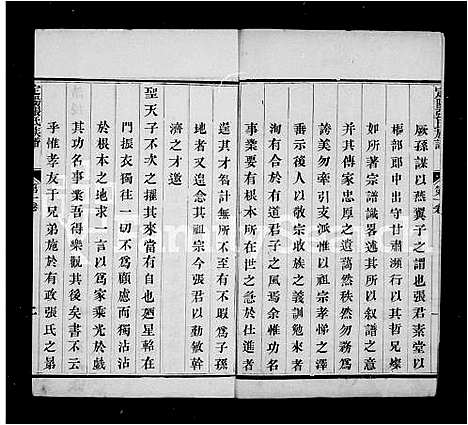 厥孫謀以燕翼子之謂也張君素堂以
郎中出守甘肅瀕行以其哲兄燦
如所著宗譜識畧述以叙譜之意
誇美勿牽引支派惟以祖宗孝悌之澤
具傳家忠厚之遺藹然秩然勿務爲
垂示後人以敬宗收族之義訓勉來者
洵有合於有道君子之風焉余惟功名
事業要有根本所在世之急於仕進者
逞其才智計無所不至有不暇爲子孫
地者又遑念其祖宗今張君以勤敏幹
濟之才邀
聖天子不次之擢其來當有自也廻星軺在
門振衣獨往一切不爲顧慮而獨沾沾
於根本之地一言以爲家乘光於戲
其功名事業吾得樂觀其後矣書不云
乎惟孝友于兄弟施於有政張氏之昴
定興張氏族譜
第一卷